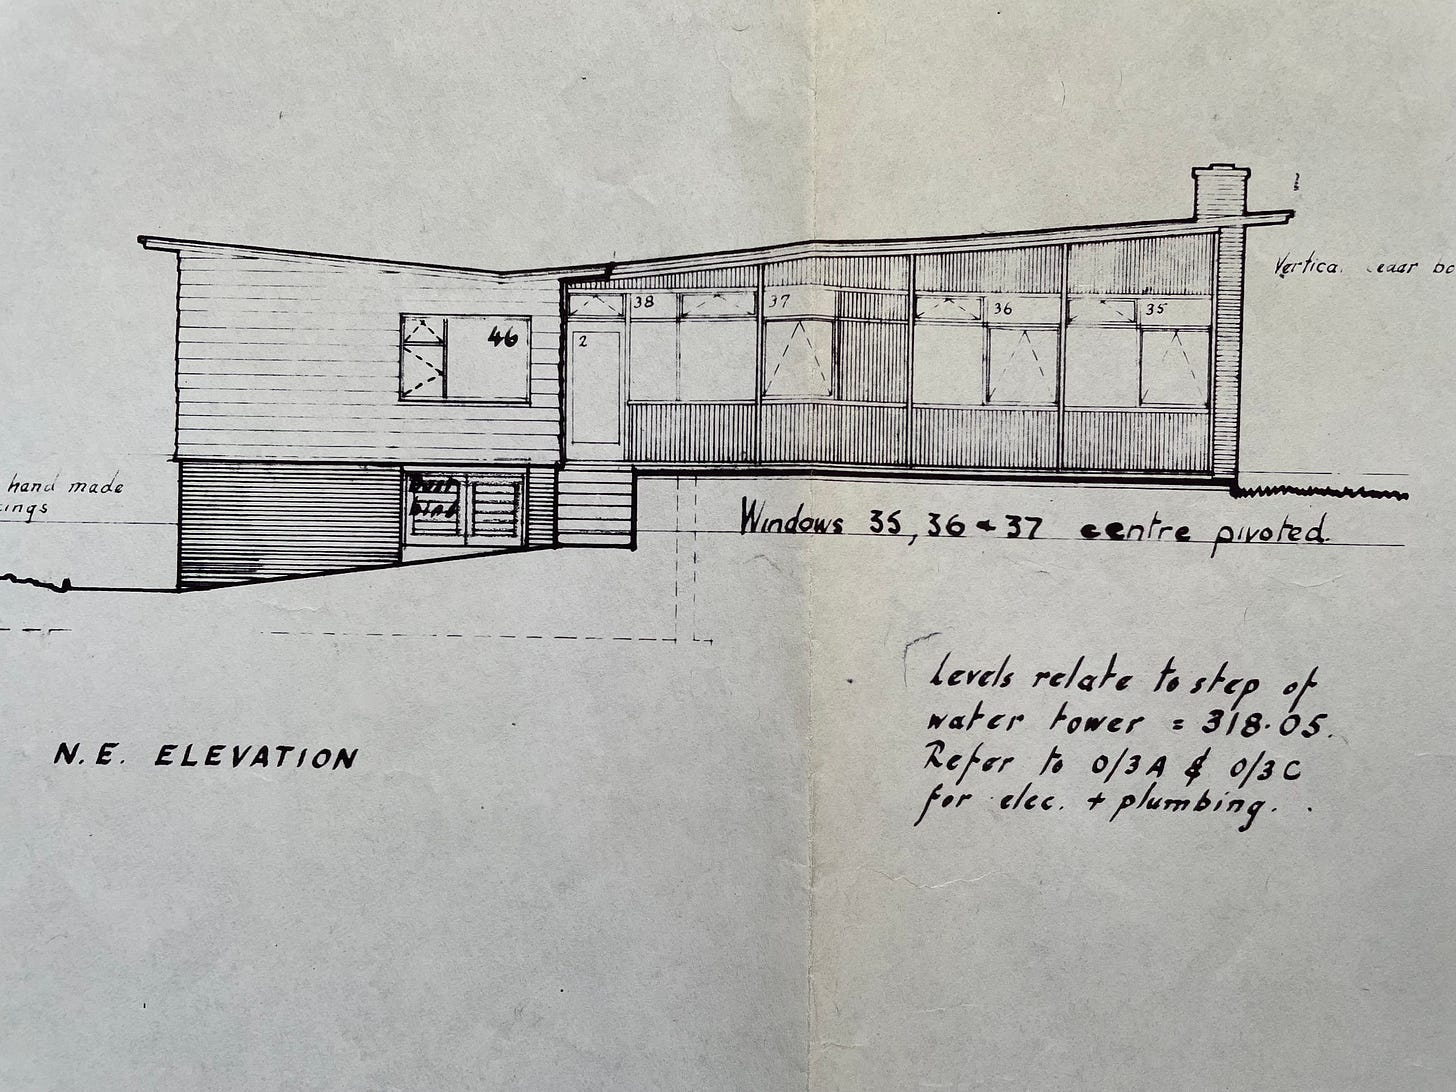 46
38
37
36
35
2
Vertical cedar bo
hand made
ings
Dust
bins
Windows 35, 36 & 37 centre pivoted.
Levels relate to step of
water tower = 318.05.
Refer to 0/3A & 0/3C
for elec. + plumbing.
N.E. ELEVATION